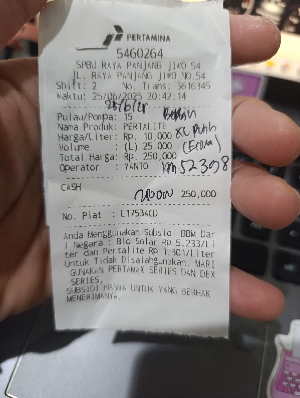 PERTAMINA
5460264
SPBU RAYA PANJANG JIWO 54
JL. RAYA PANJANG JIWO NO.54
Shift: 2 No. Trans: 3616345
Waktu: 25/06/2025 20:42:14
Pulau/Pompa: 15
Nama Produk: PERTALITE
Harga/Liter: Rp. 10,000
XL Putih
Volume : (L) 25.000
Total Harga: Rp. 250,000
Operator : YANTO
km 52398
CASH 250,000
No. Plat : L1753ACD
Anda Menggunakan Subsidi BBM Dar
i Negara : Bio Solar RP 5.233/Li
ter dan Pertalite RP 1.801/Liter
Untuk Tidak Disalahgunakan. MARI
GUNAKAN PERTAMAX SERIES DAN DEX
SERIES,
SUBSIDI HANYA UNTUK YANG BERHAK
MENERIMANYA.